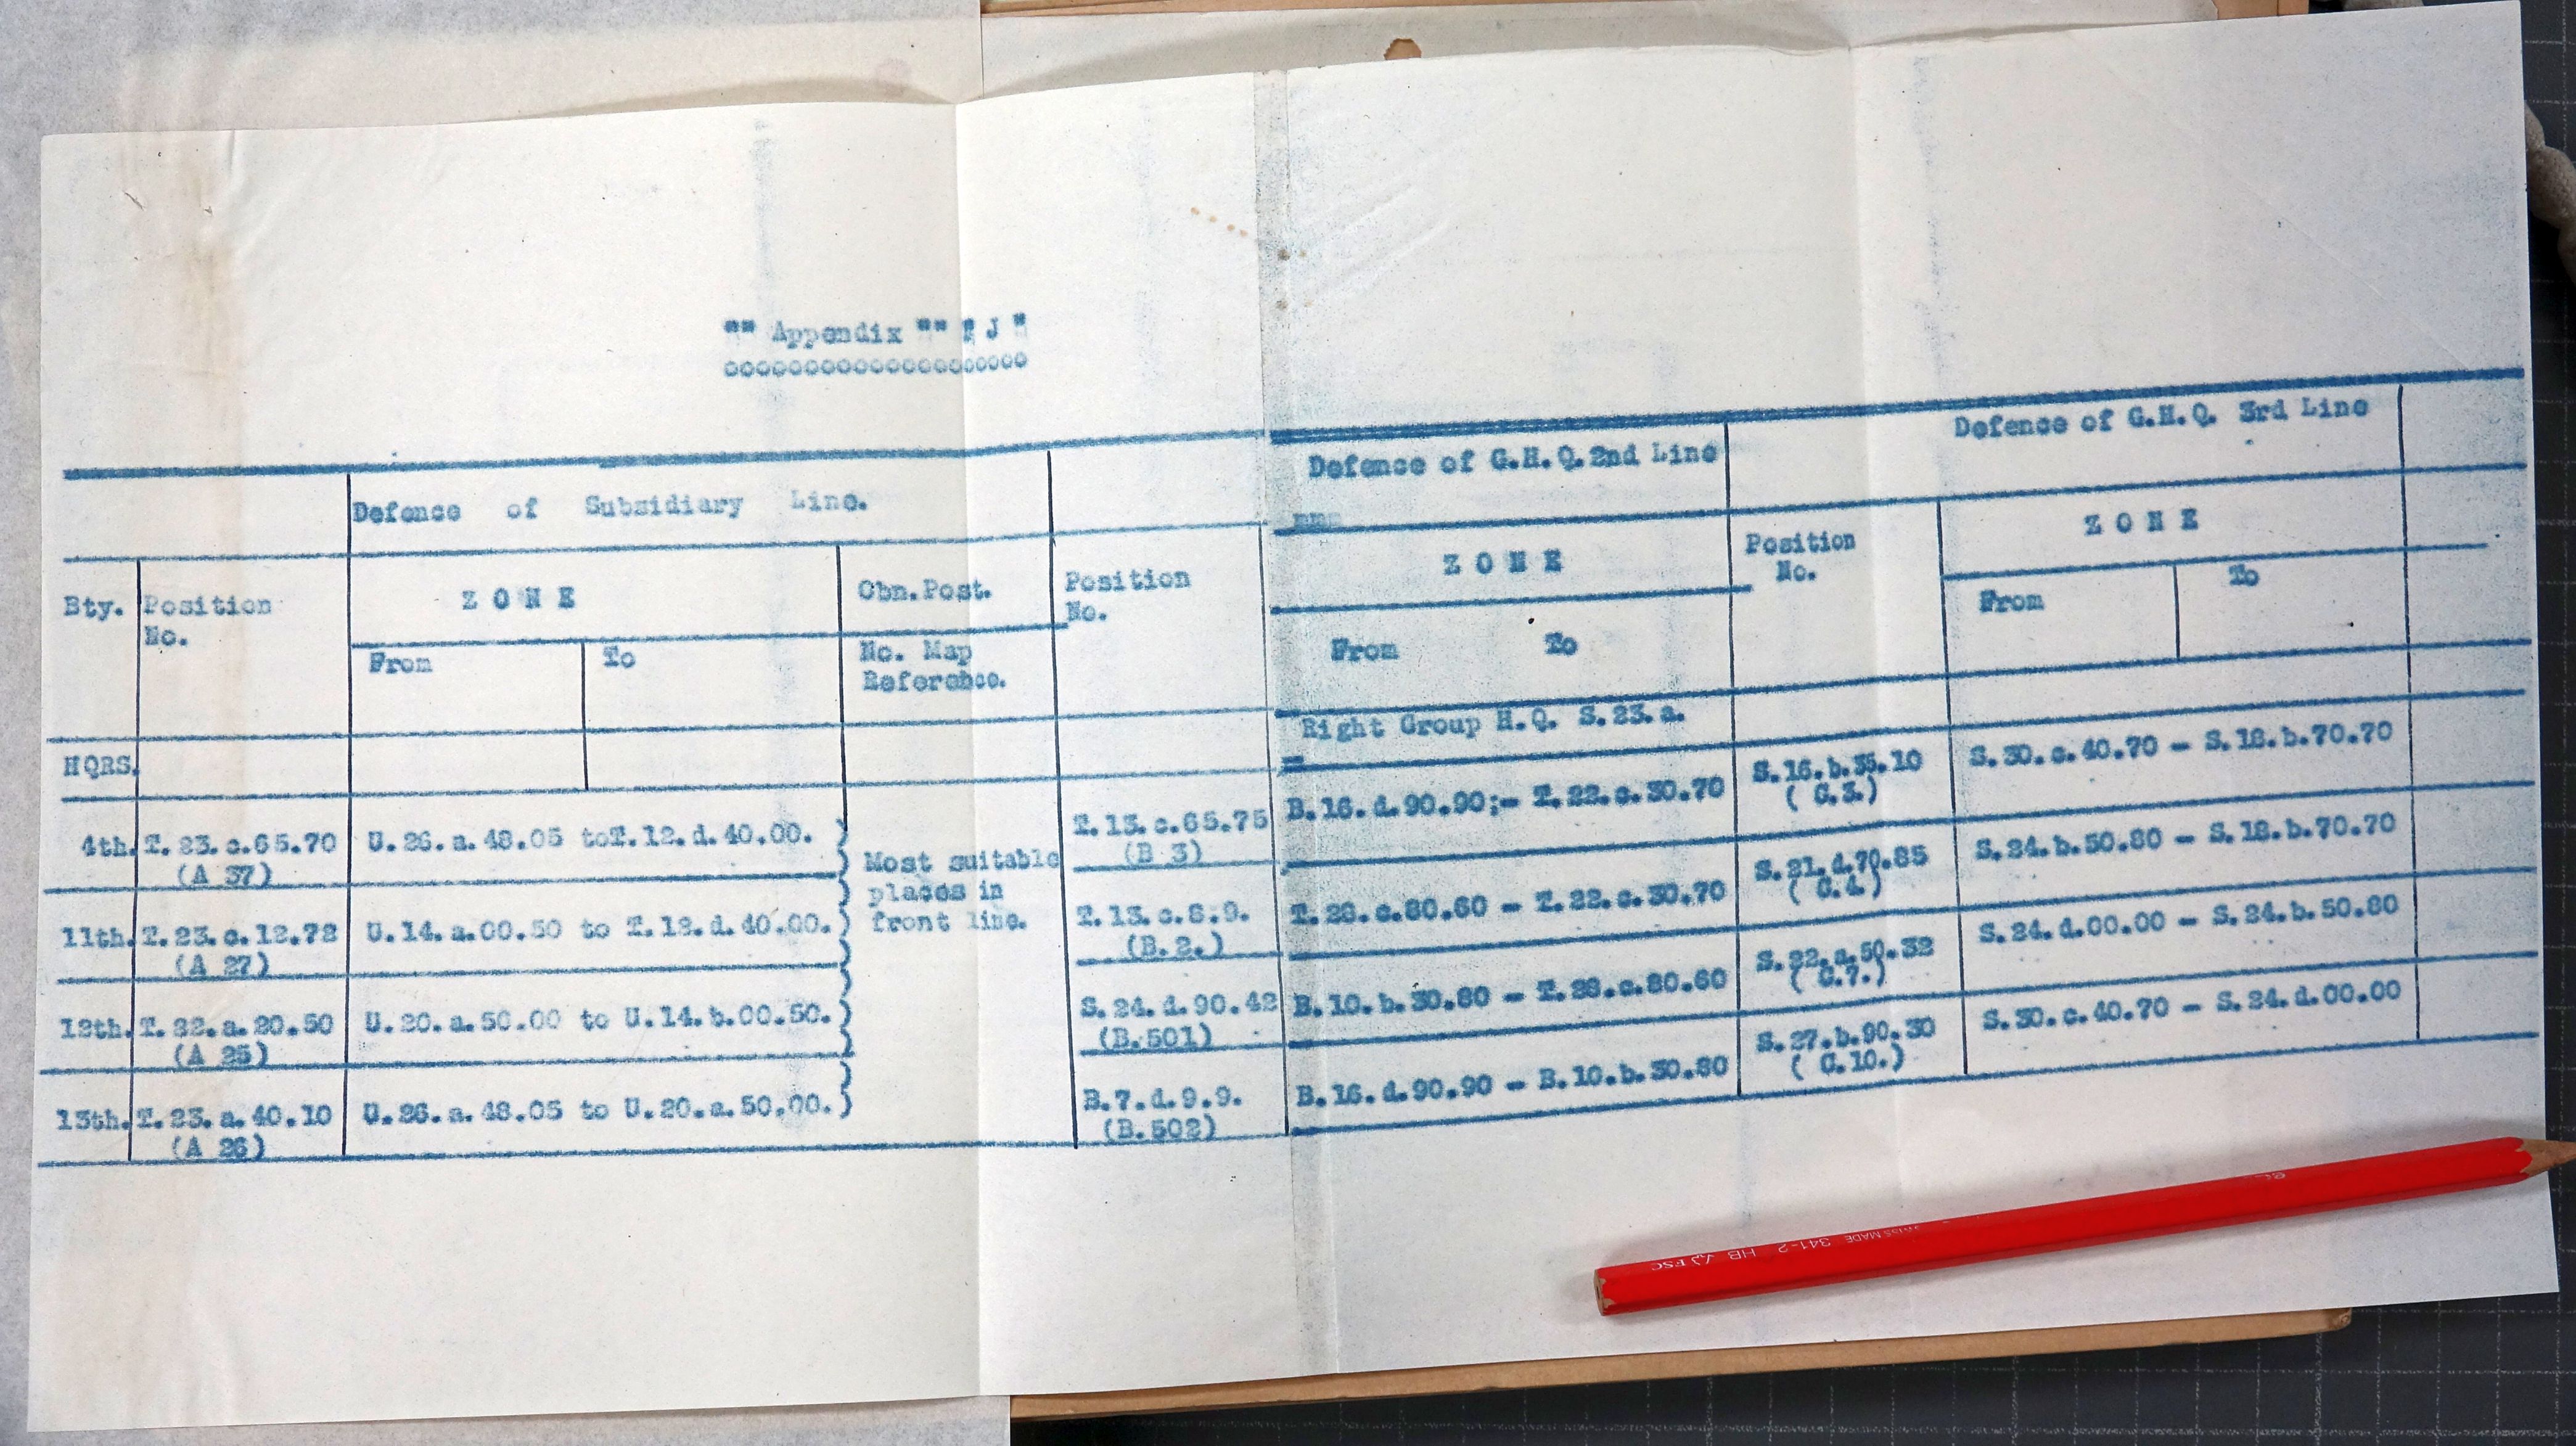 "" Appendix "" " J "
oooooooooooooooooooo
Defence of Subsidiary Line.
Defence of G.H.Q.2nd Line
Defence of G.H.Q. 3rd Line
mmm
Bty.
Position No.
Z O N E
Obn.Post.
Position No.
Z O N E
Position No.
Z O N E
From To
No. Map Reference.
From To
From To
HQRS.
Right Group H.Q. S.23.a.
4th. T.23.c.65.70 U.26.a.48.05 toT.12.d.40.00. ) T.13.c.65.75 B.16.d.90.90;- T.22.c.30.70 S.16.b.35.10 S.30.c.40.70 - S.18.b.70.70
(A 37) (B 3) ( C.3.)
Most suitable
places in
front line.
11th. T.23.c.12.72 U.14.a.00.50 to T.12.d.40.00. ) T.13.c.8.9. T.28.c.80.60 - T.22.c.30.70 S.21.d.70.85 S.24.b.50.80 - S.18.b.70.70
(A 27) (B.2.) ( C.4.)
12th. T.22.a.20.50 U.20.a.50.00 to U.14.b.00.50. ) S.24.d.90.42 B.10.b.30.80 - T.28.c.80.60 S.22.a.50.32 S.24.d.00.00 - S.24.b.50.80
(A 25) (B.501) ( C.7.)
13th. T.23.a.40.10 U.26.a.48.05 to U.20.a.50.00. ) B.7.d.9.9. B.16.d.90.90 - B.10.b.30.80 S.27.b.90.30 S.30.c.40.70 - S.24.d.00.00
(A 26) (B.502) ( C.10.)
FSC HB 341-2 MADE